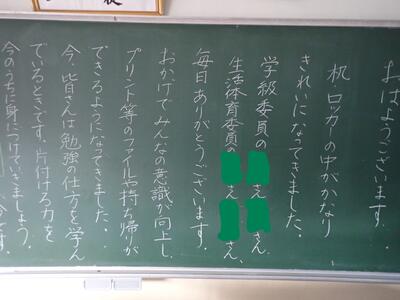 おはようございます。
机・ロッカーの中がかなり
きれいになってきました。
学級委員の さん さん
生活体育委員の さん さん、
毎日ありがとうございます。
おかげでみんなの意識が向上し、
プリント等のファイルや持ち帰りが
できるようになってきました。
今、皆さんは勉強の仕方を学ん
でいるときです。片付ける力を
今のうちに身につけていきましょう。